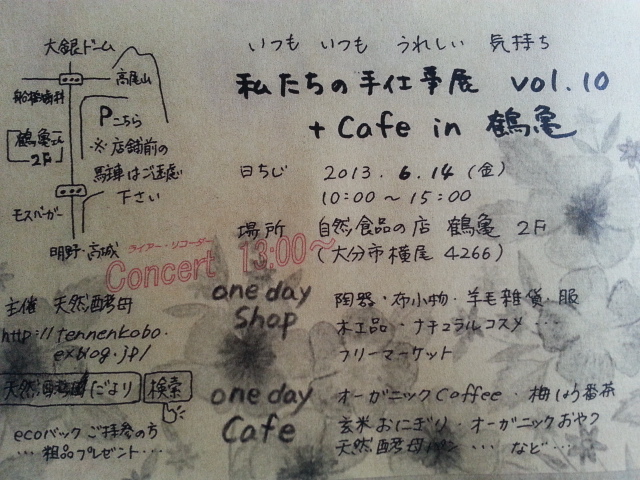 いつも いつも うれしい 気持ち
私たちの手仕事展 vol.10
+ Cafe in 鶴亀
日もじ 2013. 6. 14 (金)
10:00 ~ 15:00
場所 自然食品の店 鶴亀 2F
(大分市横尾 4266)
ライアー・リコーダー
Concert 13:00~
one day Shop
陶器・布小物・羊毛雑貨・服
木工品・ナチュラルコスメ・・・
フリーマーケット
one day Cafe
オーガニックCoffee・梅しょう番茶
玄米おにぎり・オーガニックおやつ
天然酵母パン・・・など・・・
大銀ドーム
高尾山
船橋歯科
Pこちら
鶴亀さん
2F
※店舗前の
駐車はご遠慮
下さい
モスバーガー
明野・高城
主催 天然酵母
http://tennenkobo.
exblog.jp/
天然酵母だより 検索
ecoバックご持参の方
・・・粗品プレゼント・・・